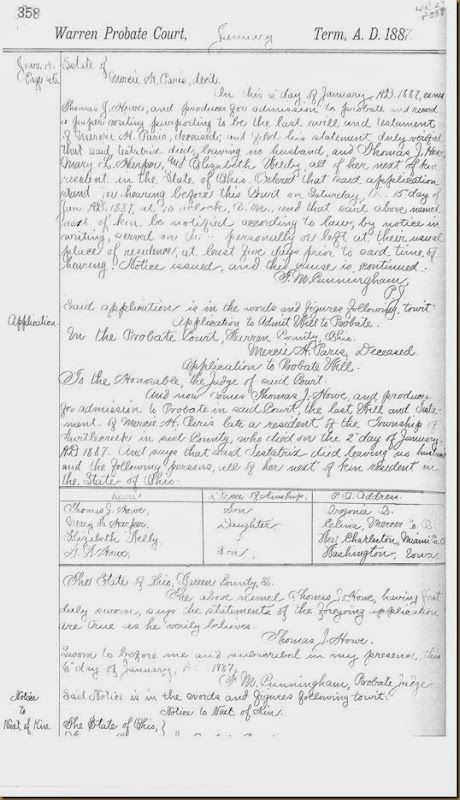 358
Warren Probate Court, January Term, A. D. 1887
Estate of
Mercie H. Paris, decd.
On this 6" day of January, A.D. 1887, comes
Thomas J. Howe, and produces for admission to probate and record
a paper writing purporting to be the last will and testament
of Mercie H. Paris, deceased; and filed his statement, duly verified
that said testatrix died, leaving no husband, and Thomas J. Howe
Mary L. Harper, and Elizabeth Kelly, all of her next of kin
resident in the State of Ohio. Ordered that said application
stand for hearing before this Court on Saturday, 15" day of
Jan. A.D. 1887, at 10 o'clock, A.M., and that said above named
next of kin be notified according to law, by notice in
writing, served on personally or left at their usual
place of residences, at least five days prior to said time of
hearing. Notice issued, and this cause is continued.
F. M. Cunningham,
P.J.
Said application is in the words and figures following, towit:
Application.
Application to Admit Will to Probate.
In the Probate Court, Warren County, Ohio.
Mercie H. Paris, Deceased.
Application to Probate Will.
To the Honorable, the Judge of said Court.
And now comes Thomas J. Howe, and produces
for admission to Probate in said Court, the last Will and Testa-
ment of Mercie H. Paris late a resident of the Township of
Turtlecreek in said County, who died on the 2" day of January
A.D. 1887. And says that said Testatrix died leaving no husband
and the following persons, all of her next of kin resident in
the State of Ohio:
Name. Degree of Kinship. P.O. Address.
Thomas J. Howe, Son Oregonia O.
Mary L. Harper, Daughter Celina, Mercer Co. O.
Elizabeth Kelly, West Charleston, Miami Co. O.
Howe, Son, Washington, Iowa.
The State of Ohio, Warren County, ss.
The above named Thomas J. Howe, having first
duly sworn, says the statements of the foregoing application
are true as he verily believes.
Thomas J. Howe.
Sworn to before me and subscribed in my presence, this
6" day of January, A.D. 1887.
F. M. Cunningham, Probate Judge
Notice
to
Next of Kin
Said Notice is in the words and figures following towit:
Notice to Next of Kin.
The State of Ohio,